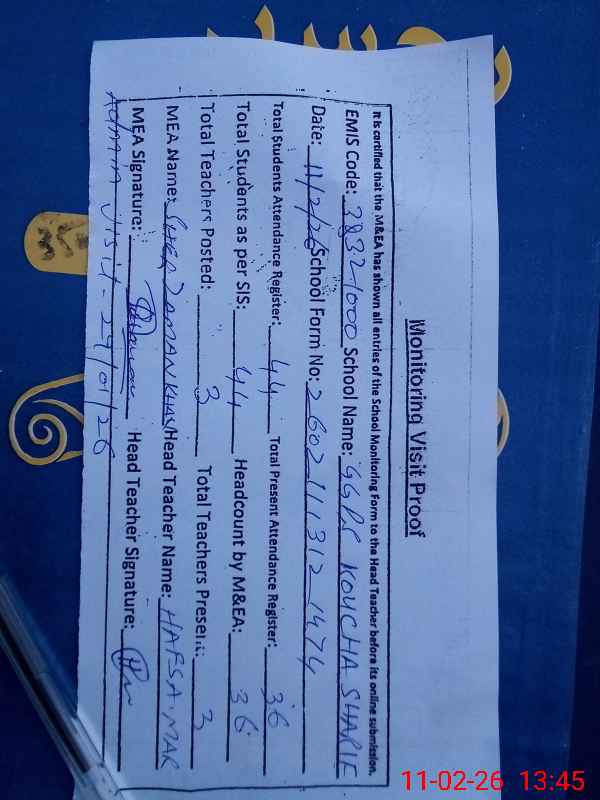 Monitoring Visit Proof
It is certified that the M&EA has shown all entries of the School Monitoring Form to the Head Teacher before its online submission.
EMIS Code: 38321000 School Name: GGPS KOUCHA SHARIF
Date: 11/2/26 School Form No: 2602111312 1474
Total Students Attendance Register: 44 Total Present Attendance Register: 36
Total Students as per SIS: 44 Headcount by M&EA: 36
Total Teachers Posted: 3 Total Teachers Present: 3
MEA Name: SHER ZAMAN KHAN Head Teacher Name: HAFSA MAR
MEA Signature: Head Teacher Signature:
ADMIN VISIT - 29/01/26
11-02-26 13:45